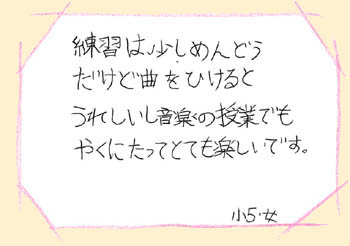 練習は少しめんどう
だけど曲をひけると
うれしいし音楽の授業でも
やくにたってとても楽しいです。
小5・女